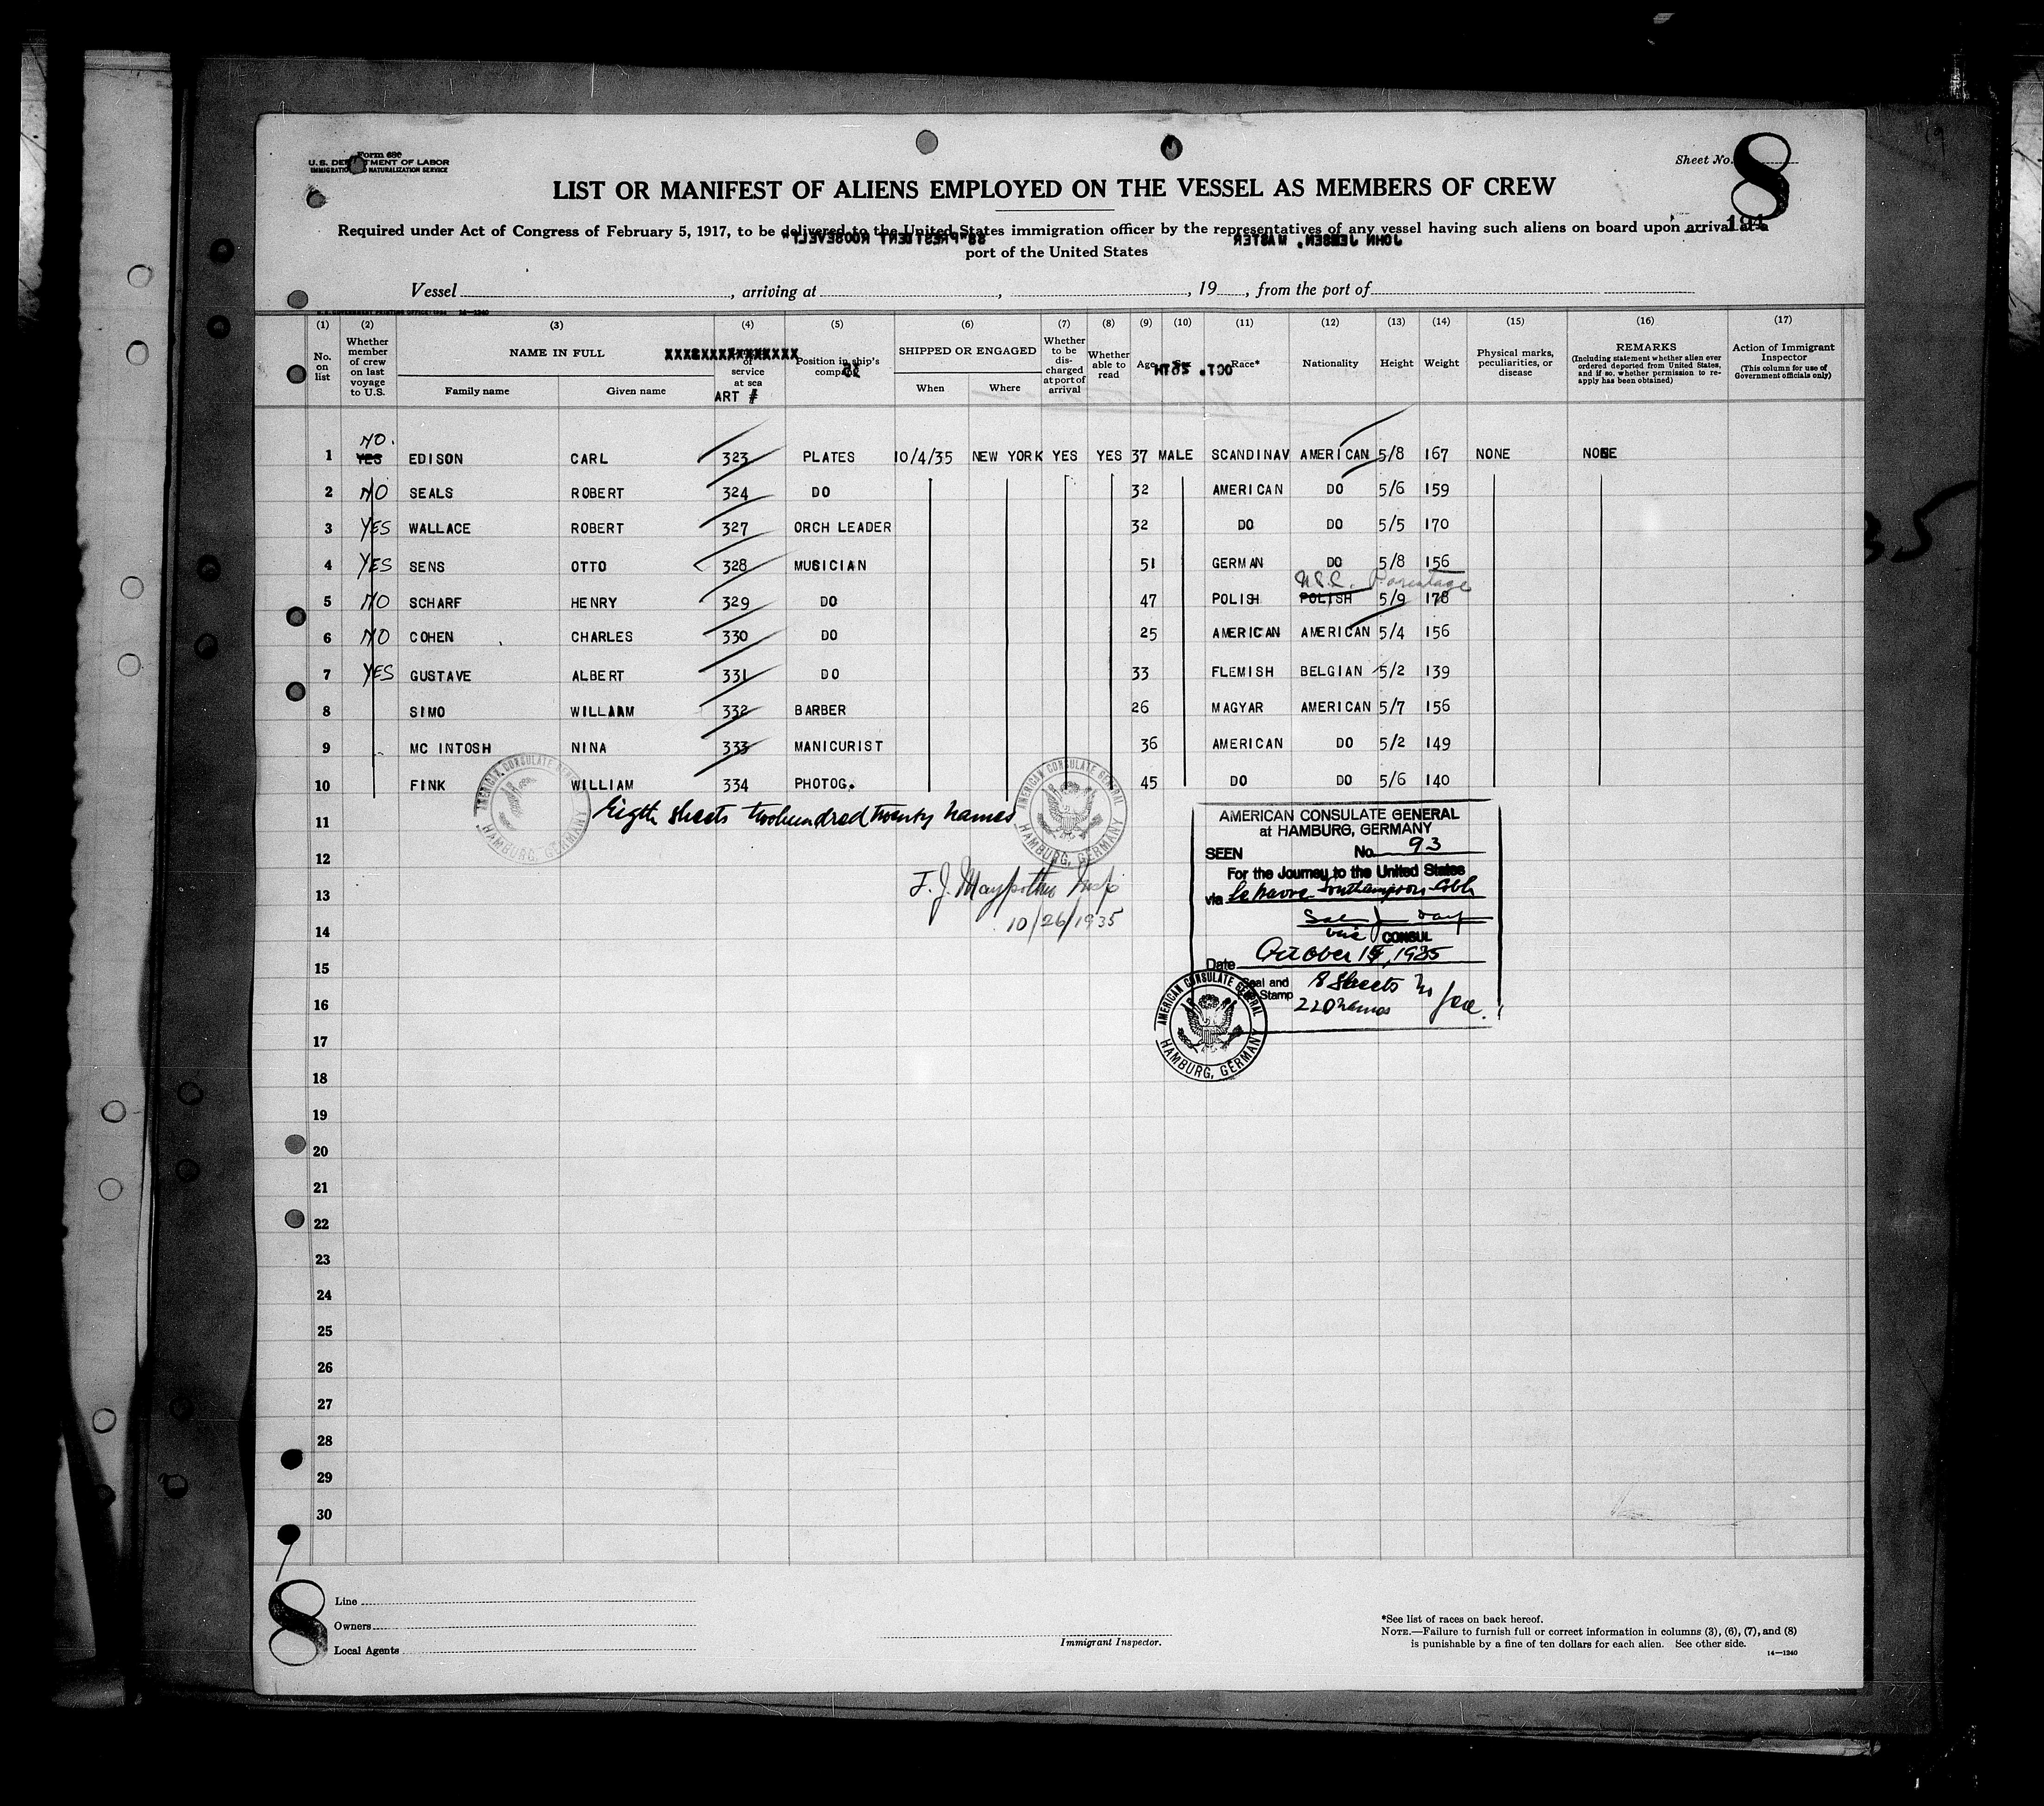 Form 680
U.S. DEPARTMENT OF LABOR
IMMIGRATION AND NATURALIZATION SERVICE
Sheet No. 8
LIST OR MANIFEST OF ALIENS EMPLOYED ON THE VESSEL AS MEMBERS OF CREW
Required under Act of Congress of February 5, 1917, to be delivered to the United States immigration officer by the representatives of any vessel having such aliens on board upon arrival at a
SS"PRESIDENT ROOSEVELT" JOHN JENSEN, MASTER
port of the United States
Vessel , arriving at , , 19 , from the port of
(1) (2) (3) (4) (5) (6) (7) (8) (9) (10) (11) (12) (13) (14) (15) (16) (17)
No. on list
Whether member of crew on last voyage to U.S.
NAME IN FULL
Family name Given name
of service at sea
ART #
Position in ship's company
35
SHIPPED OR ENGAGED
When Where
Whether to be discharged at port of arrival
Whether able to read
Age
OCT. 26TH
Race*
Nationality
Height
Weight
Physical marks, peculiarities, or disease
REMARKS
(Including statement whether alien ever ordered deported from United States, and if so, whether permission to reapply has been obtained)
Action of Immigrant Inspector
(This column for use of Government officials only)
NO.
1 YES EDISON CARL 323 PLATES 10/4/35 NEW YORK YES YES 37 MALE SCANDINAV AMERICAN 5/8 167 NONE NONE
2 NO SEALS ROBERT 324 DO 32 AMERICAN DO 5/6 159
3 YES WALLACE ROBERT 327 ORCH LEADER 32 DO DO 5/5 170
4 YES SENS OTTO 328 MUSICIAN 51 GERMAN DO 5/8 156
U.S.C. Parentage
5 NO SCHARF HENRY 329 DO 47 POLISH POLISH 5/9 178
6 NO COHEN CHARLES 330 DO 25 AMERICAN AMERICAN 5/4 156
7 YES GUSTAVE ALBERT 331 DO 33 FLEMISH BELGIAN 5/2 139
8 SIMO WILLIAM 332 BARBER 26 MAGYAR AMERICAN 5/7 156
9 MC INTOSH NINA 333 MANICURIST 36 AMERICAN DO 5/2 149
10 FINK WILLIAM 334 PHOTOG. 45 DO DO 5/6 140
AMERICAN CONSULATE GENERAL HAMBURG, GERMANY
Eigth sheets twohundred twenty names
AMERICAN CONSULATE GENERAL HAMBURG, GERMANY
11
12
13
14
15
16
17
18
19
20
21
22
23
24
25
26
27
28
29
30
10/26/1935
AMERICAN CONSULATE GENERAL
at HAMBURG, GERMANY
SEEN No. 93
For the Journey to the United States
via Le havre Southampton Cobh
vice CONSUL
Date October 15, 1935
Seal and Stamp 8 Sheets
220 names
AMERICAN CONSULATE GENERAL HAMBURG, GERMANY
35
8
Line
Owners
Local Agents
Immigrant Inspector.
*See list of races on back hereof.
NOTE.—Failure to furnish full or correct information in columns (3), (6), (7), and (8)
is punishable by a fine of ten dollars for each alien. See other side.
14—1240